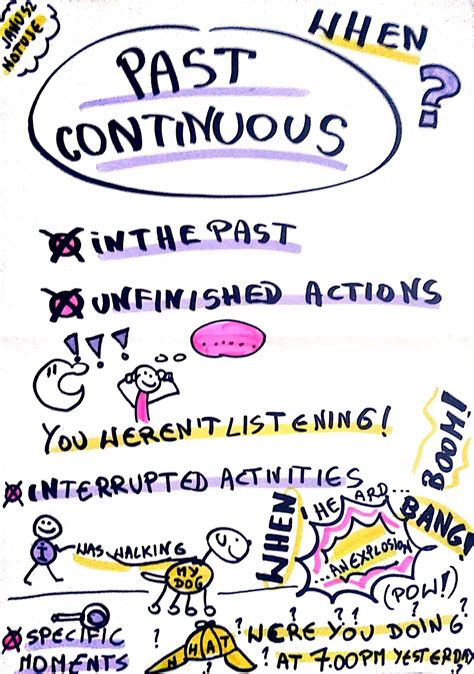 JANUSZ
NOTUJE
WHEN
?
PAST
CONTINUOUS
IN THE PAST
UNFINISHED ACTIONS
!!!
......
YOU WEREN'T LISTENING!
INTERRUPTED ACTIVITIES
BOOM!
I WAS WALKING
MY
DOG
WHEN
I HEARD...
...AN EXPLOSION
BANG!
(POW!)
SPECIFIC
MOMENTS
? ? ? ? ? ?
WHAT
WERE YOU DOING
AT 7.00PM YESTERDAY